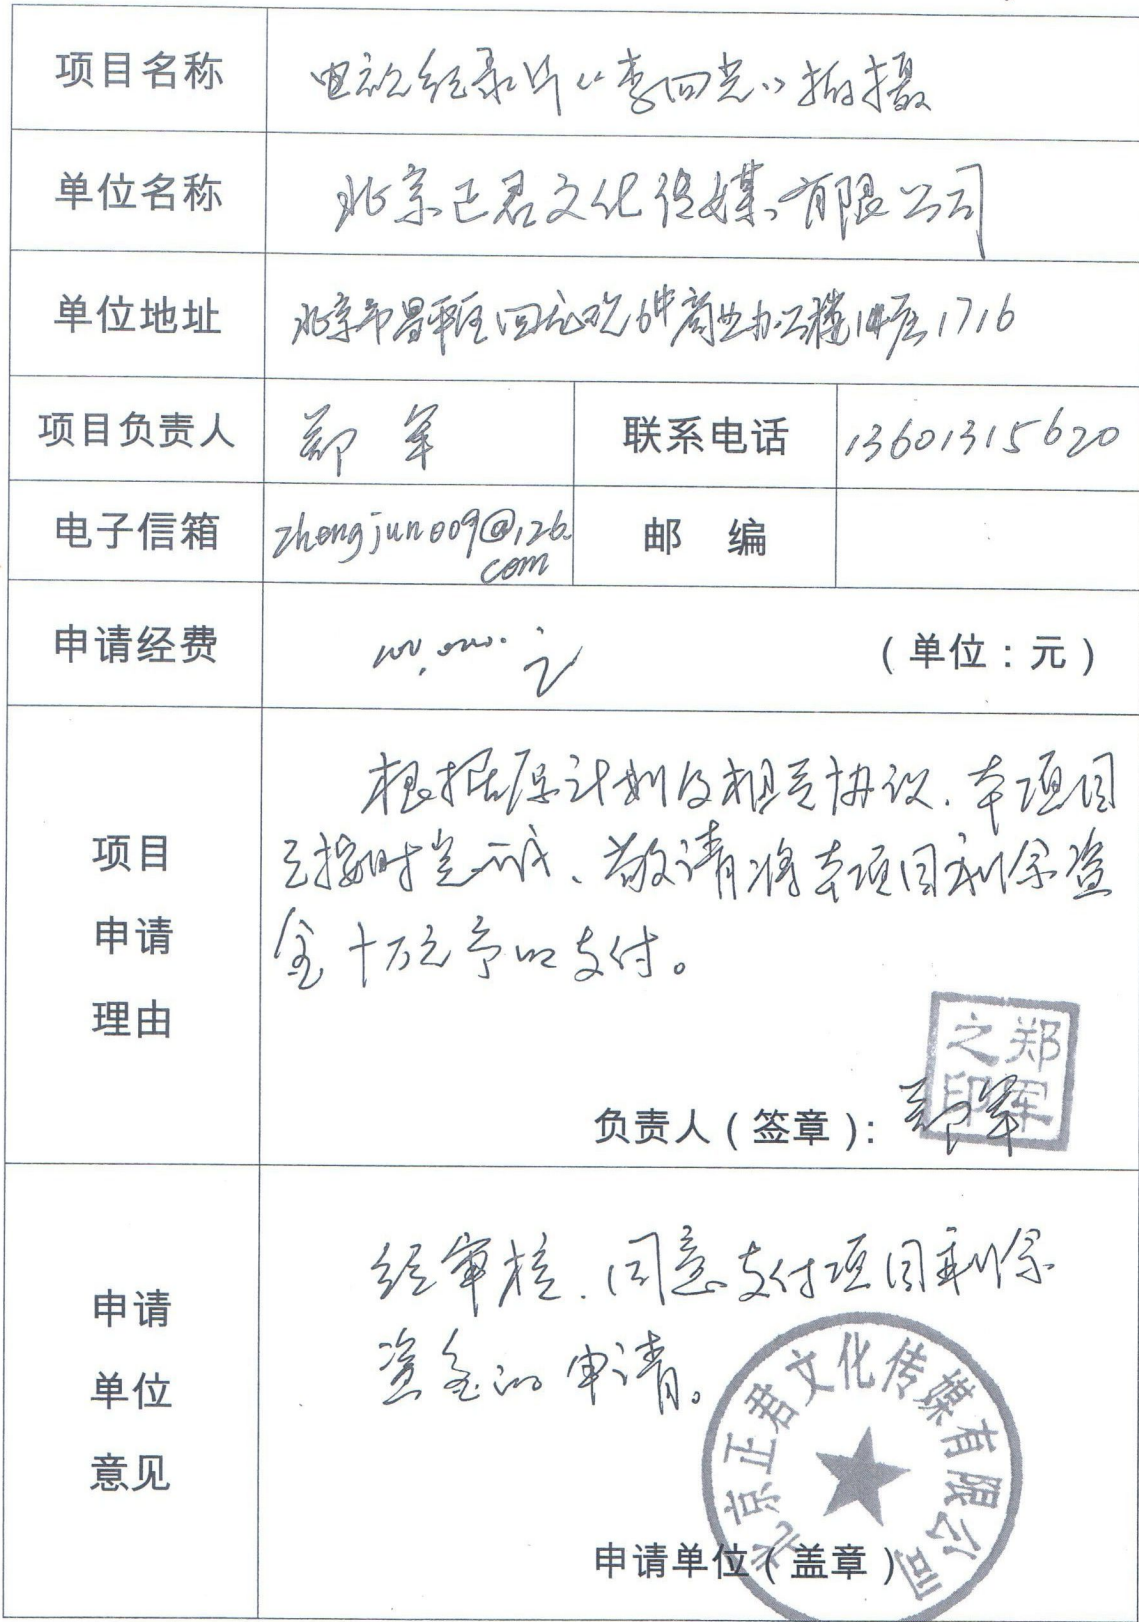 项目名称 电视纪录片《李四光》拍摄
单位名称 北京正君文化传媒有限公司
单位地址 北京市昌平区回龙观6#商业办公楼14层1716
项目负责人 郑军 联系电话 13601315620
电子信箱 zhengjun009@126.
com 邮 编
申请经费 100,000.元 (单位:元)
根据原计划及相关协议、本项目
项目 已按时完成、敬请将本项目剩余资
申请 金十万元予以支付。
理由
之郑
印军
负责人(签章): 郑军
经审核、同意支付项目剩余
申请 资金的申请。
单位
意见
北京正君文化传媒有限公司
申请单位(盖章)